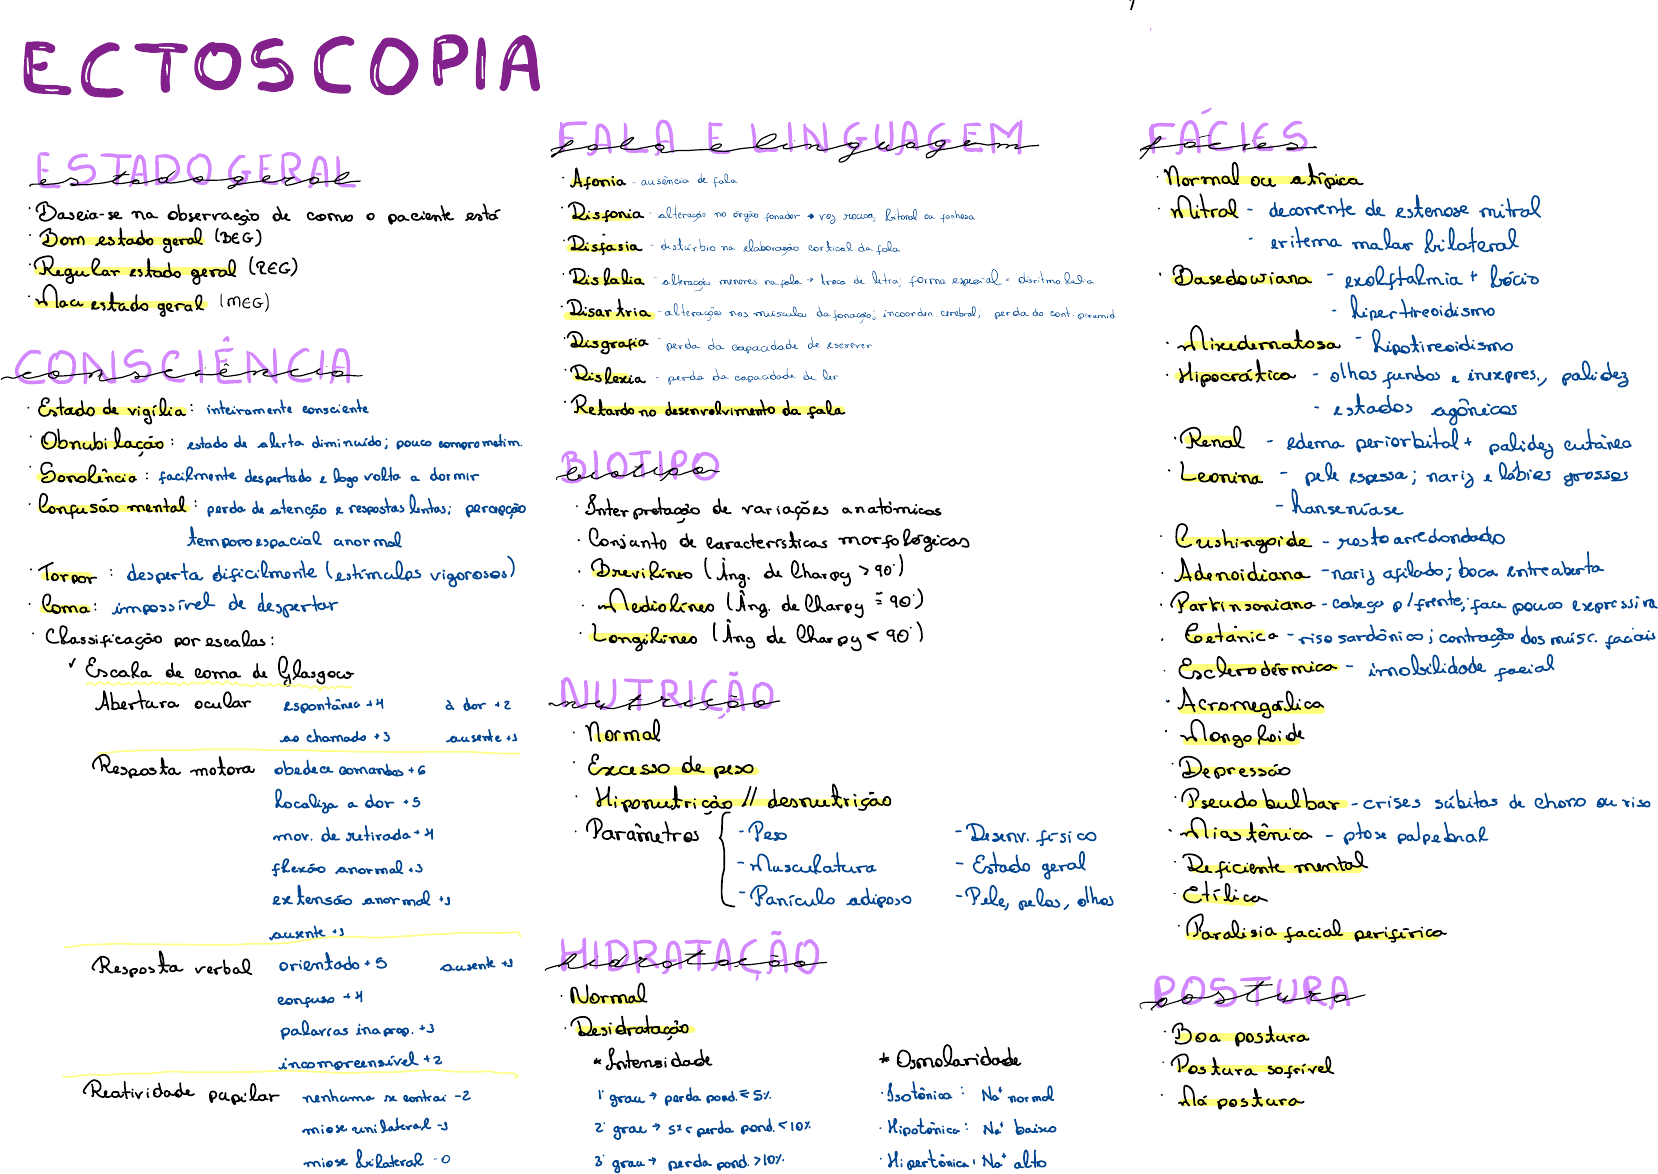 ECTOSCOPIA
ESTADO GERAL
estado geral
· Baseia-se na observação de como o paciente está
· Bom estado geral (BEG)
· Regular estado geral (REG)
· Mau estado geral (MEG)
CONSCIÊNCIA
consciência
· Estado de vigília: inteiramente consciente
· Obnubilação: estado de alerta diminuído; pouco comprometim.
· Sonolência: facilmente despertado e logo volta a dormir
· Confusão mental: perda de atenção e respostas lentas; percepção
temporoespacial anormal
· Torpor: desperta dificilmente (estímulos vigorosos)
· Coma: impossível de despertar
· Classificação por escalas:
✓ Escala de coma de Glasgow
Abertura ocular espontânea +4 à dor +2
ao chamado +3 ausente +1
Resposta motora obedece comandos +6
localiza a dor +5
mov. de retirada +4
flexão anormal +3
extensão anormal +2
ausente +1
Resposta verbal orientado +5 ausente +1
confuso +4
palavras inaprop. +3
incompreensível +2
Reatividade pupilar nenhuma se contrai -2
miose unilateral -1
miose bilateral -0
FALA E LINGUAGEM
fala e linguagem
· Afonia - ausência de fala
· Disfonia - alteração no órgão fonador → voz rouca, bitonal ou fanhosa
· Disfasia - distúrbio na elaboração cortical da fala
· Dislalia - alterações menores na fala → troca de letra; forma especial = disritmolalia
· Disartria - alterações nos músculos da fonação; incoorden. cerebral; perda do cont. piramid.
· Disgrafia - perda da capacidade de escrever
· Dislexia - perda da capacidade de ler
· Retardo no desenvolvimento da fala
BIOTIPO
biotipo
· Interpretação de variações anatômicas
· Conjunto de características morfológicas
· Brevilíneo (Âng. de Charpy > 90°)
· Mediolíneo (Âng. de Charpy = 90°)
· Longilíneo (Âng de Charpy < 90°)
NUTRIÇÃO
nutrição
· Normal
· Excesso de peso
· Hiponutrição // desnutrição
· Parâmetros { - Peso - Desenv. físico
- Musculatura - Estado geral
- Panículo adiposo - Pele, pelos, olhos
HIDRATAÇÃO
hidratação
· Normal
· Desidratação
* Intensidade * Osmolaridade
1° grau → perda pond. ≤ 5% · Isotônica: Na⁺ normal
2° grau → 5% < perda pond. < 10% · Hipotônica: Na⁺ baixo
3° grau → perda pond. > 10% · Hipertônica: Na⁺ alto
FÁCIES
fácies
· Normal ou atípica
· Mitral - decorrente de estenose mitral
- eritema malar bilateral
· Basedowiana - exolftalmia + bócio
- hipertireoidismo
· Mixedematosa - hipotireoidismo
· Hipocrática - olhos fundos e inexpres., palidez
- estados agônicos
· Renal - edema periorbital + palidez cutânea
· Leonina - pele espessa; nariz e lábios grossos
- hanseníase
· Cushingoide - rosto arredondado
· Adenoidiana - nariz afilado; boca entreaberta
· Parkinsoniana - cabeça p/ frente; face pouco expressiva
· Tetânica - riso sardônico; contração dos músc. faciais
· Esclerodérmica - imobilidade facial
· Acromegálica
· Mongoloide
· Depressão
· Pseudobulbar - crises súbitas de choro ou riso
· Miastênica - ptose palpebral
· Deficiente mental
· Etílica
· Paralisia facial periférica
POSTURA
postura
· Boa postura
· Postura sofrível
· Má postura